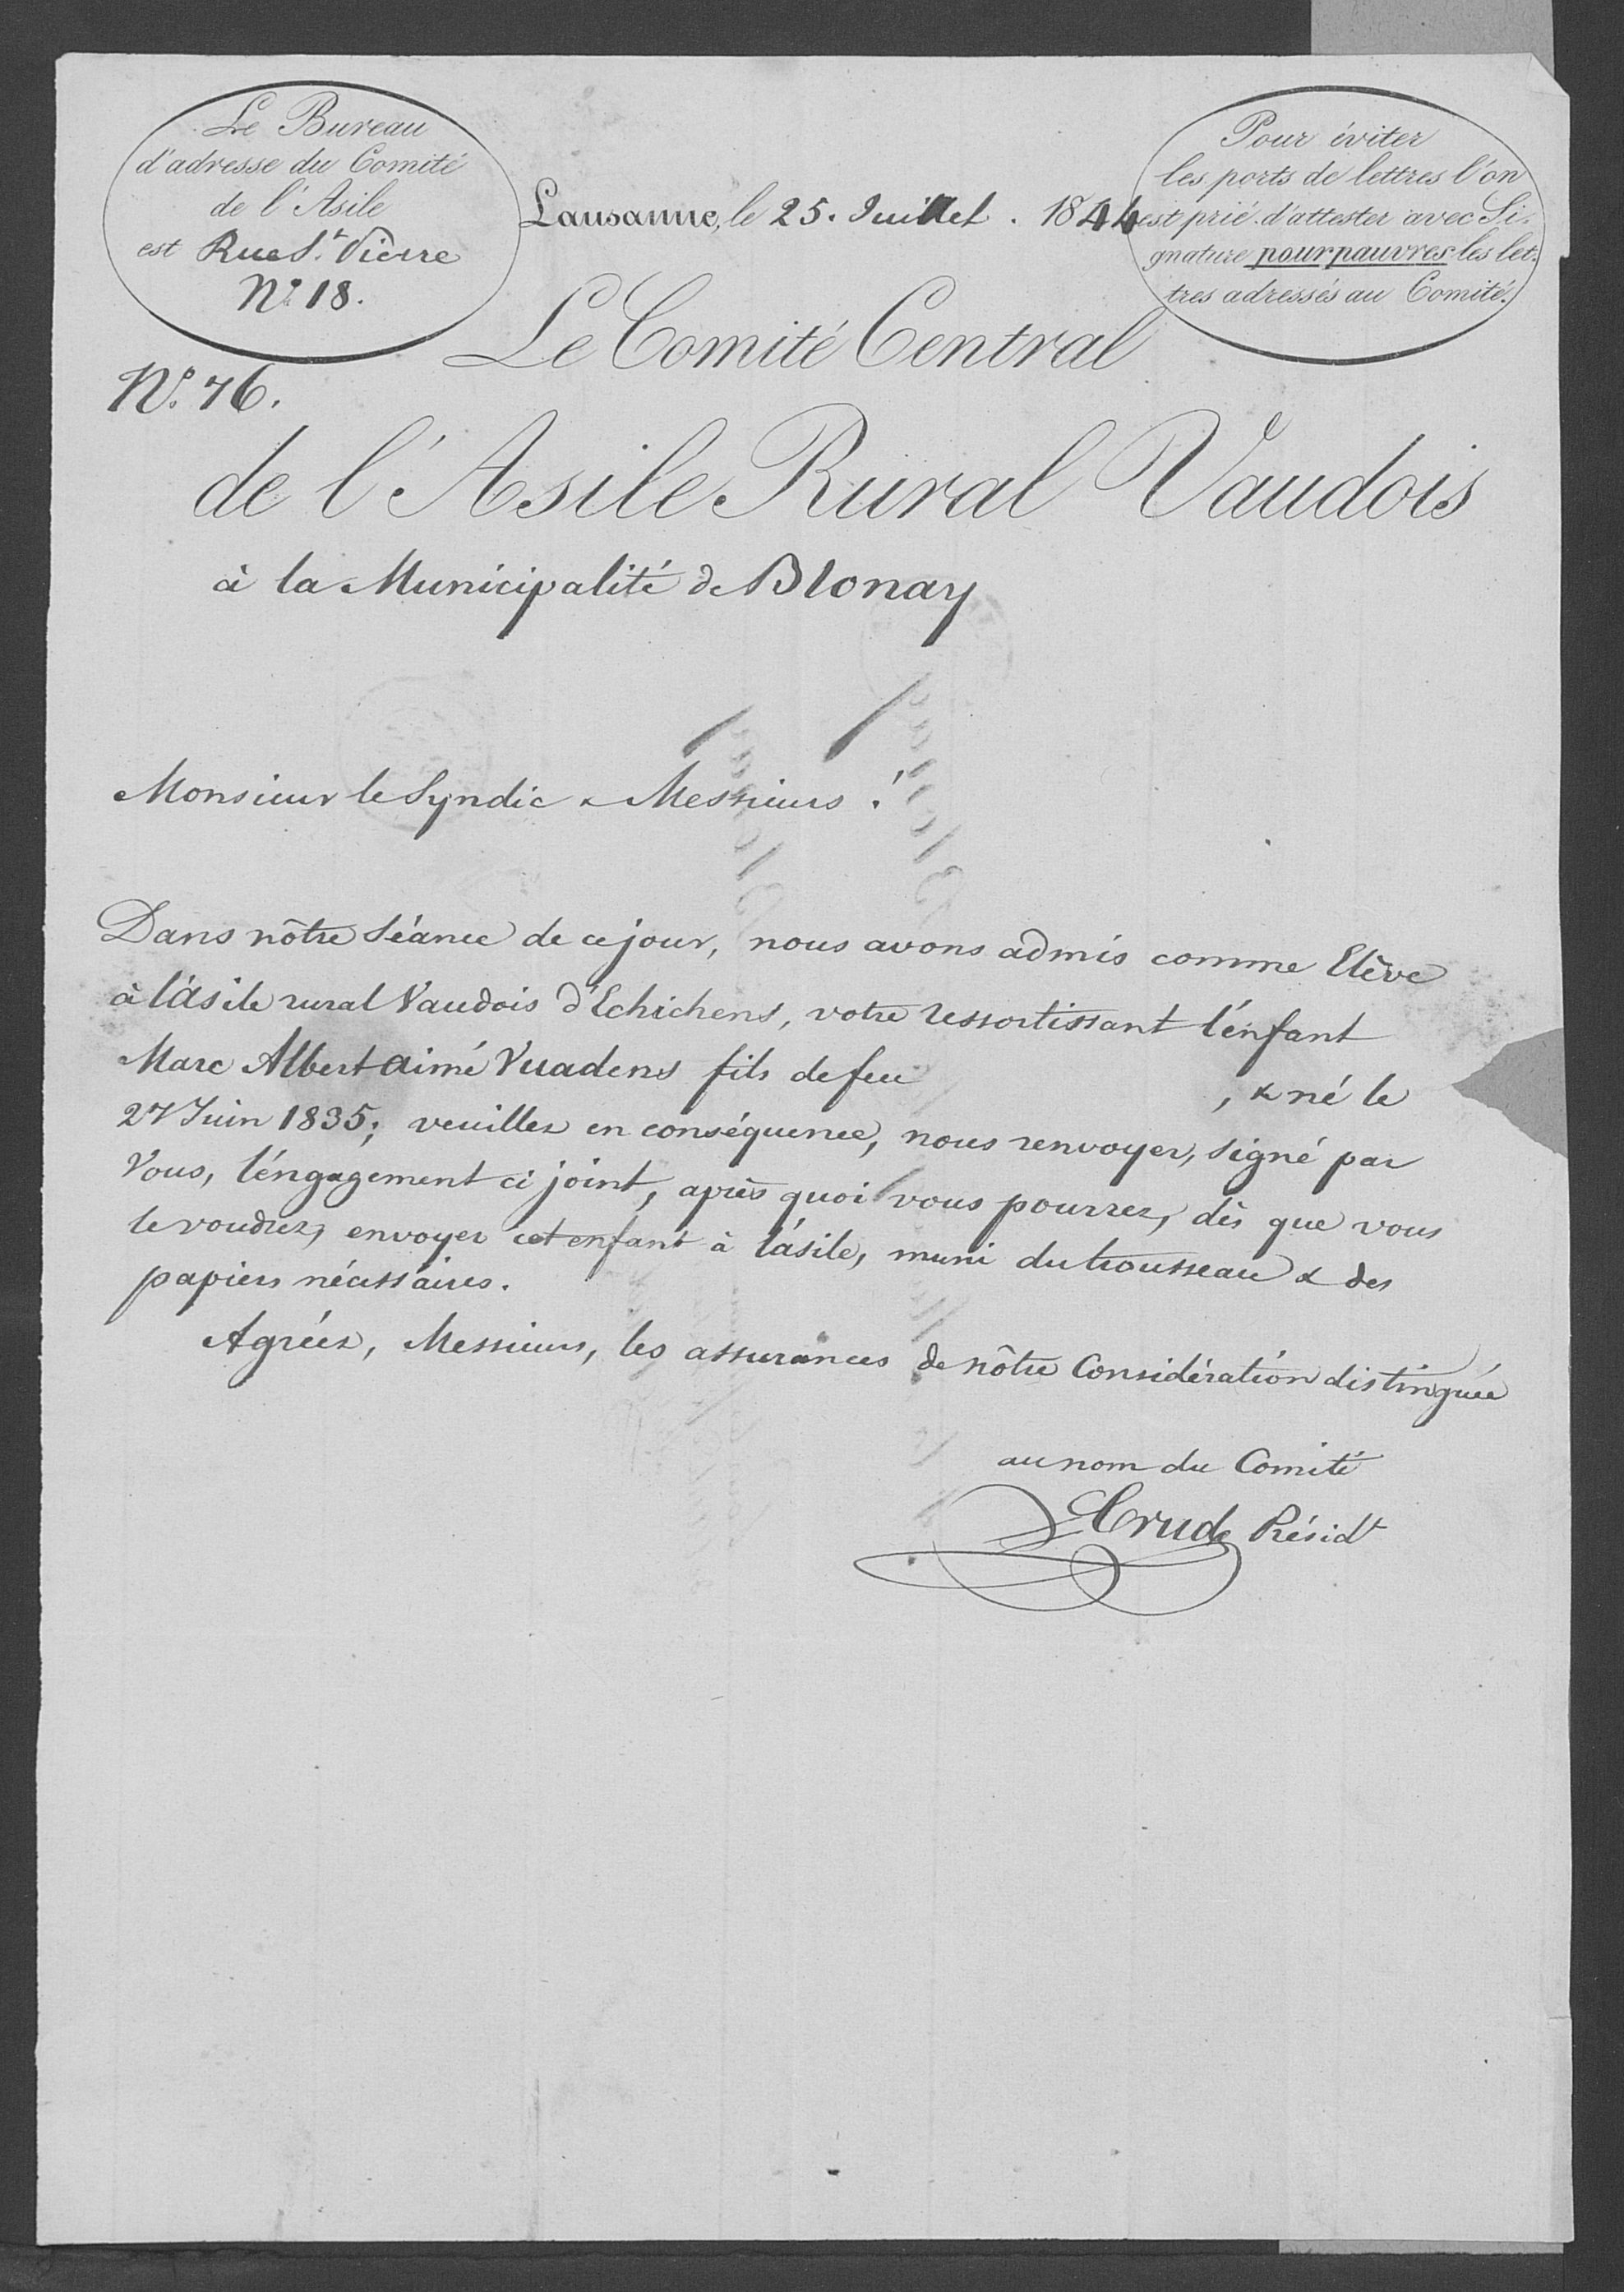 Le Bureau
d'adresse du Comité
de l'Asile
est Rue St. Pierre
No. 18.
Lausanne, le 25. Juillet. 1844
Pour éviter
les ports de lettres l'on
est prié d'attester avec Si-
gnature pour pauvres les let-
tres adressés au Comité.
Le Comité Central
No. 76.
de l'Asile Rural Vaudois
à la Municipalité de Blonay
Monsieur le Syndic & Messieurs !
Dans nôtre Séance de ce jour, nous avons admis comme Elève
à l'asile rural Vaudois d'Echichens, votre ressortissant l'enfant
Marc Albert aimé Vuadens fils de feu , & né le
27 Juin 1835; veuillez en conséquence, nous renvoyer, signé par
Vous, l'engagement ci joint, après quoi vous pourrez, dès que vous
le voudrez, envoyer cet enfant à l'asile, muni du trousseau & des
papiers nécessaires.
Agréez, Messieurs, les assurances de nôtre Considération distinguée
au nom du Comité
Crud Présidt